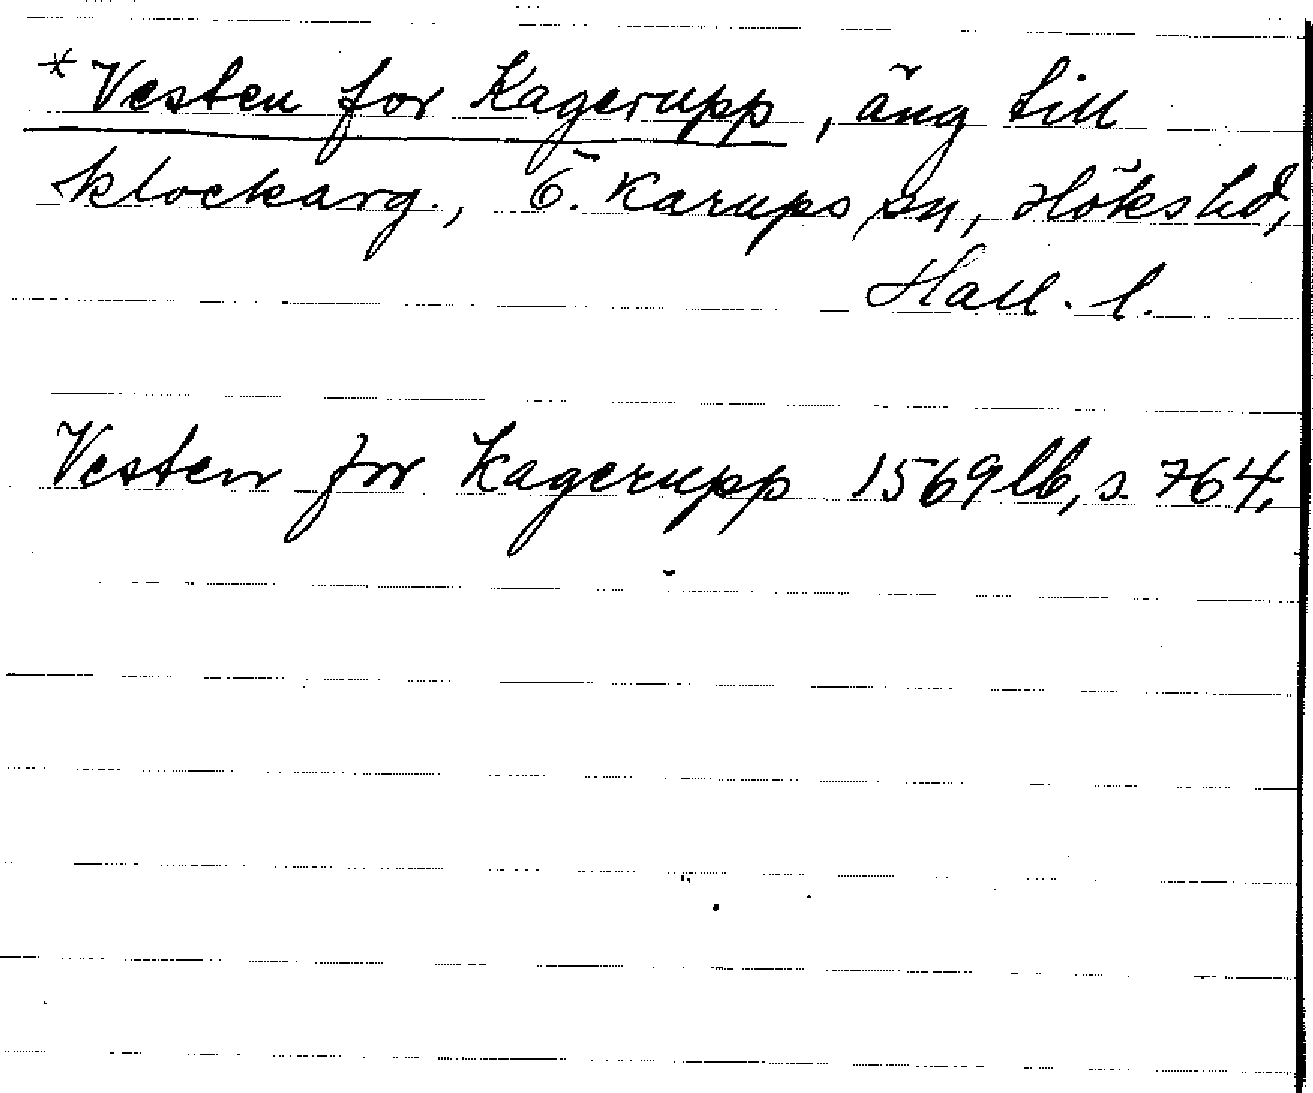 * Vesten for Kagerupp, äng till
klockarg., Ö. Karups sn, Höks hd,
Hall. l.
Vesten for Kagerupp 1569 lb, s. 764.